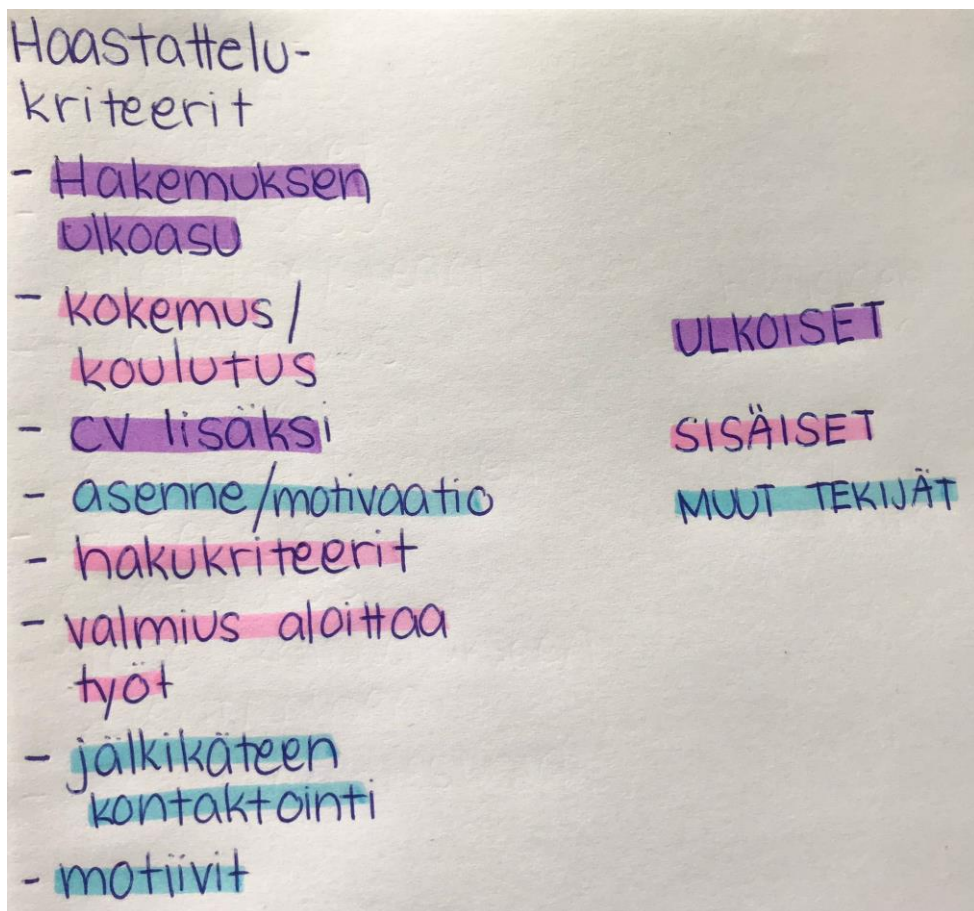 Haastattelu-
kriteerit
- Hakemuksen
ulkoasu
- kokemus/
koulutus
- CV lisäksi
- asenne/motivaatio
- hakukriteerit
- valmius aloittaa
työt
- jälkikäteen
kontaktointi
- motiivit
ULKOISET
SISÄISET
MUUT TEKIJÄT